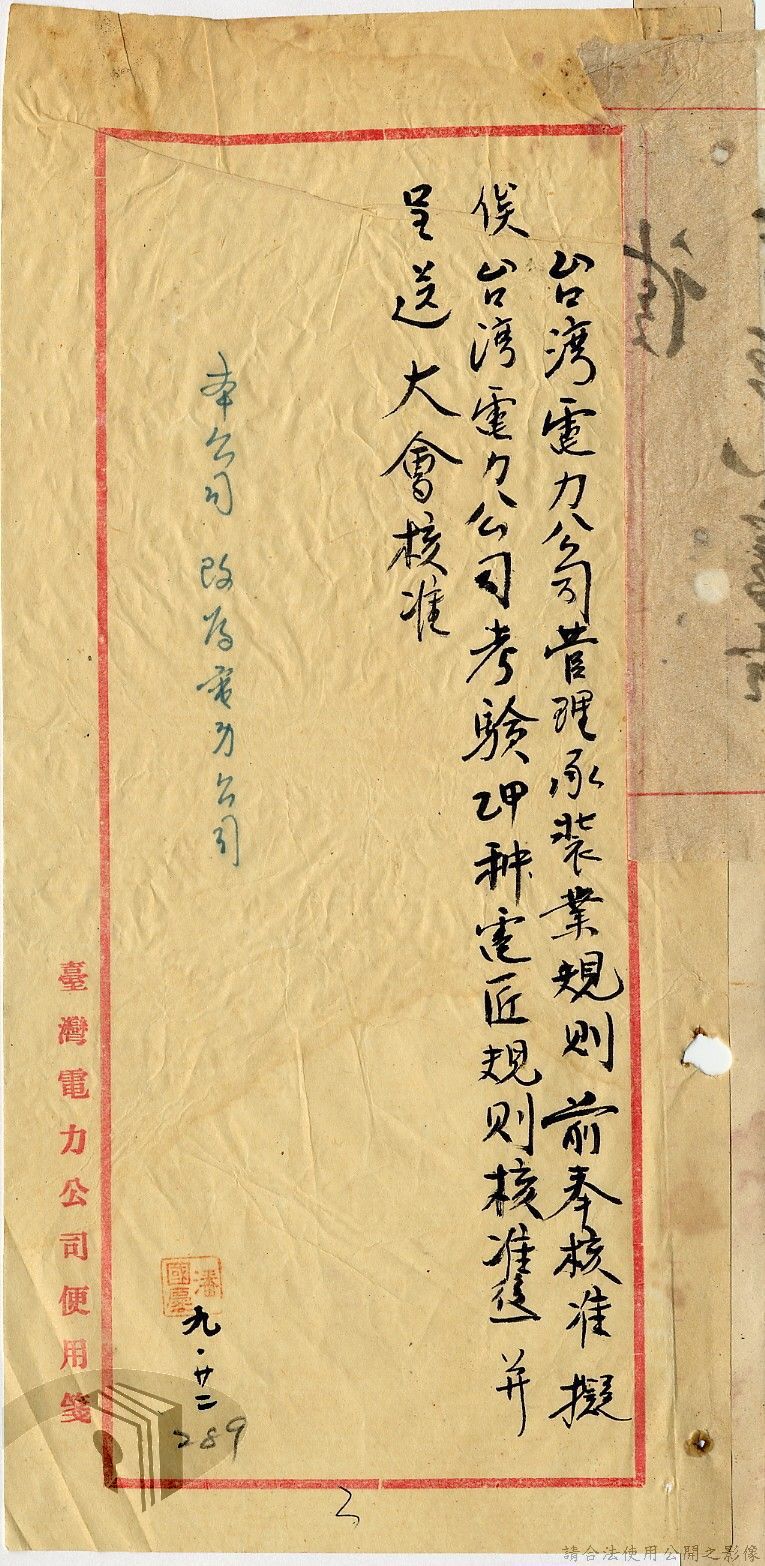 台湾電力公司管理承装業規則前奉核准擬
俟台湾電力公司考驗甲种電匠規則核准後并
呈送大會核准
本公司 改為電力公司
潘國臺
九.廿二
289
臺灣電力公司便用箋
2
請合法使用公開之影像